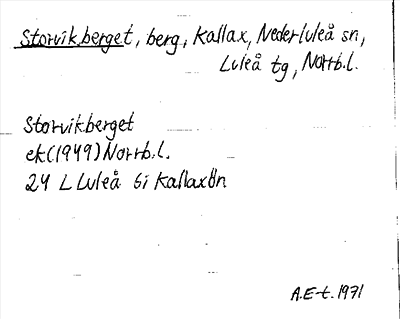 Storvikberget, berg, Kallax, Nederluleå sn,
Luleå tg, Norrb.l.
Storvikberget
ek(1949) Norrb.l.
24 L Luleå 6i Kallaxön
A.E-t. 1971